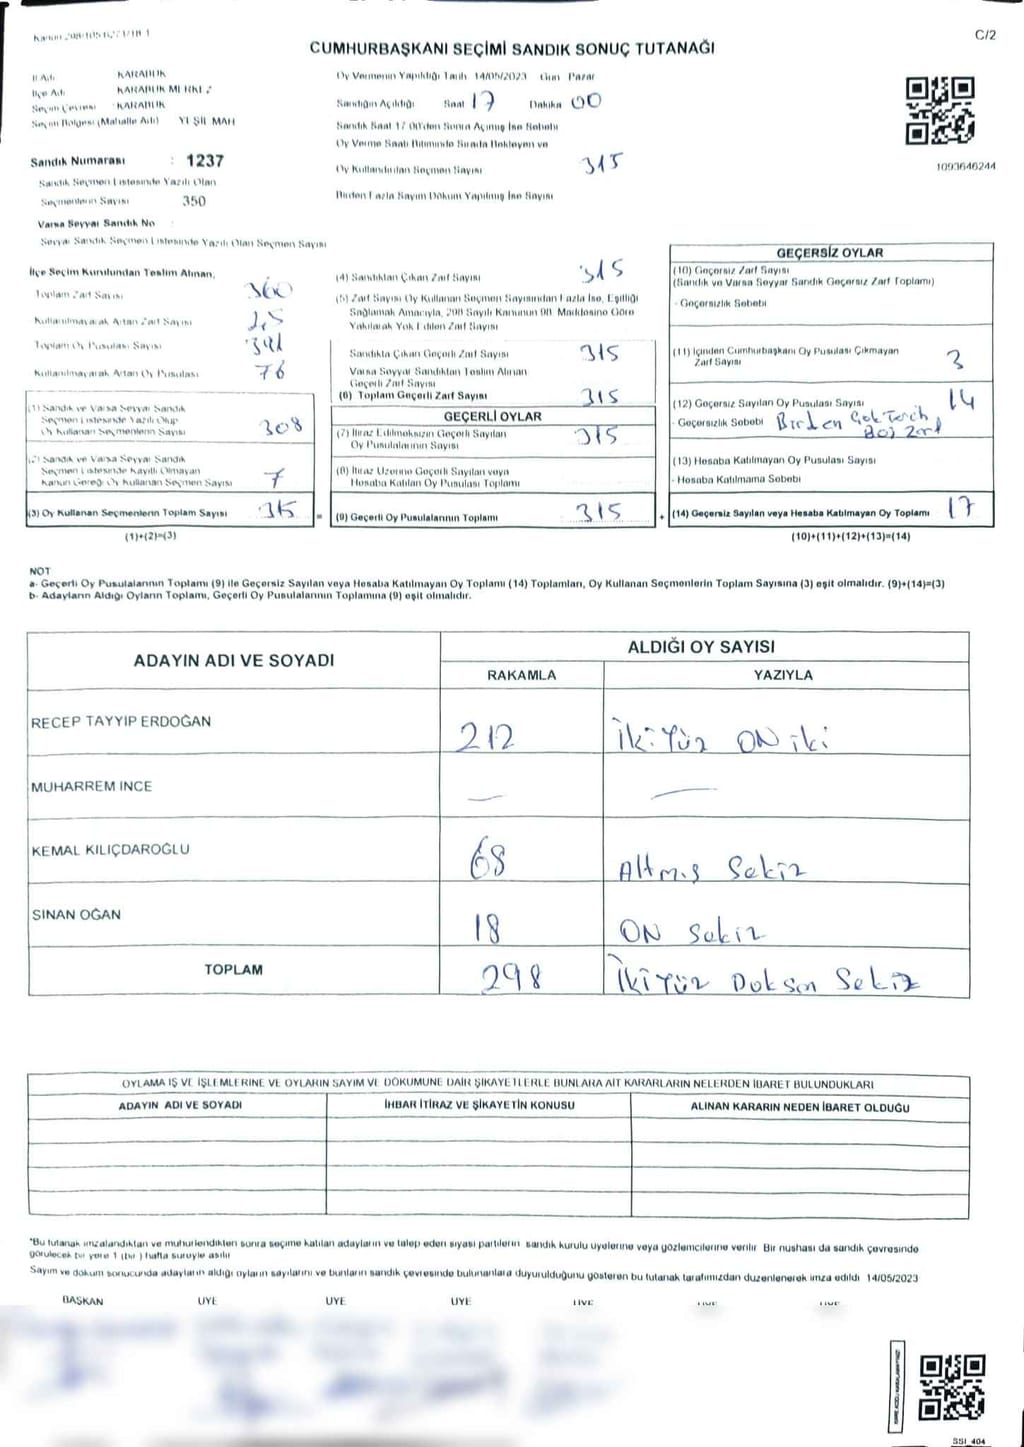 C/2
CUMHURBAŞKANI SEÇİMİ SANDIK SONUÇ TUTANAĞI
İl Adı KARABÜK
İlçe Adı KARABÜK MERKEZ
Seçim Çevresi KARABÜK
Seçim Bölgesi (Mahalle Adı) YEŞİL MAH
Sandık Numarası : 1237
Sandık Seçmen Listesinde Yazılı Olan
Seçmenlerin Sayısı 350
Varsa Seyyar Sandık No :
Seyyar Sandık Seçmen Listesinde Yazılı Olan Seçmen Sayısı
Oy Vermenin Yapıldığı Tarih 14/05/2023 Gün Pazar
Sandığın Açıldığı Saat 17 Dakika 00
Sandık Saat 17 00'den Sonra Açılmış İse Sebebi
Oy Verme Saati Bitiminde Sırada Bekleyen ve
Oy Kullandırılan Seçmen Sayısı 315
Birden Fazla Sayım Döküm Yapılmış İse Sayısı
1093646244
İlçe Seçim Kurulundan Teslim Alınan,
Toplam Zarf Sayısı 360
Kullanılmayarak Artan Zarf Sayısı
Toplam Oy Pusulası Sayısı 391
Kullanılmayarak Artan Oy Pusulası 76
(1) Sandık ve Varsa Seyyar Sandık
Seçmen Listesinde Yazılı Olup
Oy Kullanan Seçmenlerin Sayısı 308
(2) Sandık ve Varsa Seyyar Sandık
Seçmen Listesinde Kayıtlı Olmayan
Kanun Gereği Oy Kullanan Seçmen Sayısı 7
(3) Oy Kullanan Seçmenlerin Toplam Sayısı 315
(1)+(2)=(3)
(4) Sandıktan Çıkan Zarf Sayısı 315
(5) Zarf Sayısı Oy Kullanan Seçmen Sayısından Fazla İse, Eşitliği
Sağlamak Amacıyla, 298 Sayılı Kanunun 98. Maddesine Göre
Yakılarak Yok Edilen Zarf Sayısı
Sandıkta Çıkan Geçerli Zarf Sayısı 315
Varsa Seyyar Sandıktan Teslim Alınan
Geçerli Zarf Sayısı
(6) Toplam Geçerli Zarf Sayısı 315
GEÇERLİ OYLAR
(7) İtiraz Edilmeksizin Geçerli Sayılan
Oy Pusulalarının Sayısı 315
(8) İtiraz Üzerine Geçerli Sayılan veya
Hesaba Katılan Oy Pusulası Toplamı
= (9) Geçerli Oy Pusulalarının Toplamı 315 +
GEÇERSİZ OYLAR
(10) Geçersiz Zarf Sayısı
(Sandık ve Varsa Seyyar Sandık Geçersiz Zarf Toplamı)
- Geçersizlik Sebebi
(11) İçinden Cumhurbaşkanı Oy Pusulası Çıkmayan
Zarf Sayısı 3
(12) Geçersiz Sayılan Oy Pusulası Sayısı 14
- Geçersizlik Sebebi Birden Çok Tercih
Boş Zarf
(13) Hesaba Katılmayan Oy Pusulası Sayısı
- Hesaba Katılmama Sebebi
(14) Geçersiz Sayılan veya Hesaba Katılmayan Oy Toplamı 17
(10)+(11)+(12)+(13)=(14)
NOT
a- Geçerli Oy Pusulalarının Toplamı (9) ile Geçersiz Sayılan veya Hesaba Katılmayan Oy Toplamı (14) Toplamları, Oy Kullanan Seçmenlerin Toplam Sayısına (3) eşit olmalıdır. (9)+(14)=(3)
b- Adayların Aldığı Oyların Toplamı, Geçerli Oy Pusulalarının Toplamına (9) eşit olmalıdır.
ADAYIN ADI VE SOYADI
ALDIĞI OY SAYISI
RAKAMLA YAZIYLA
RECEP TAYYIP ERDOĞAN 212 İki Yüz ON iki
MUHARREM INCE — —
KEMAL KILIÇDAROĞLU 68 Altmış Sekiz
SINAN OĞAN 18 ON Sekiz
TOPLAM 298 İki Yüz Doksan Sekiz
OYLAMA İŞ VE İŞLEMLERİNE VE OYLARIN SAYIM VE DÖKÜMÜNE DAİR ŞİKAYETLERLE BUNLARA AİT KARARLARIN NELERDEN İBARET BULUNDUKLARI
ADAYIN ADI VE SOYADI İHBAR İTİRAZ VE ŞİKAYETİN KONUSU ALINAN KARARIN NEDEN İBARET OLDUĞU
"Bu tutanak imzalandıktan ve mühürlendikten sonra seçime katılan adayların ve talep eden siyasi partilerin sandık kurulu üyelerine veya gözlemcilerine verilir Bir nüshası da sandık çevresinde
görülecek bir yere 1 (bir) hafta süreyle asılır
Sayım ve döküm sonucunda adayların aldığı oyların sayılarını ve bunların sandık çevresinde bulunanlara duyurulduğunu gösteren bu tutanak tarafımızdan düzenlenerek imza edildi 14/05/2023
BAŞKAN ÜYE ÜYE ÜYE
SSI 404